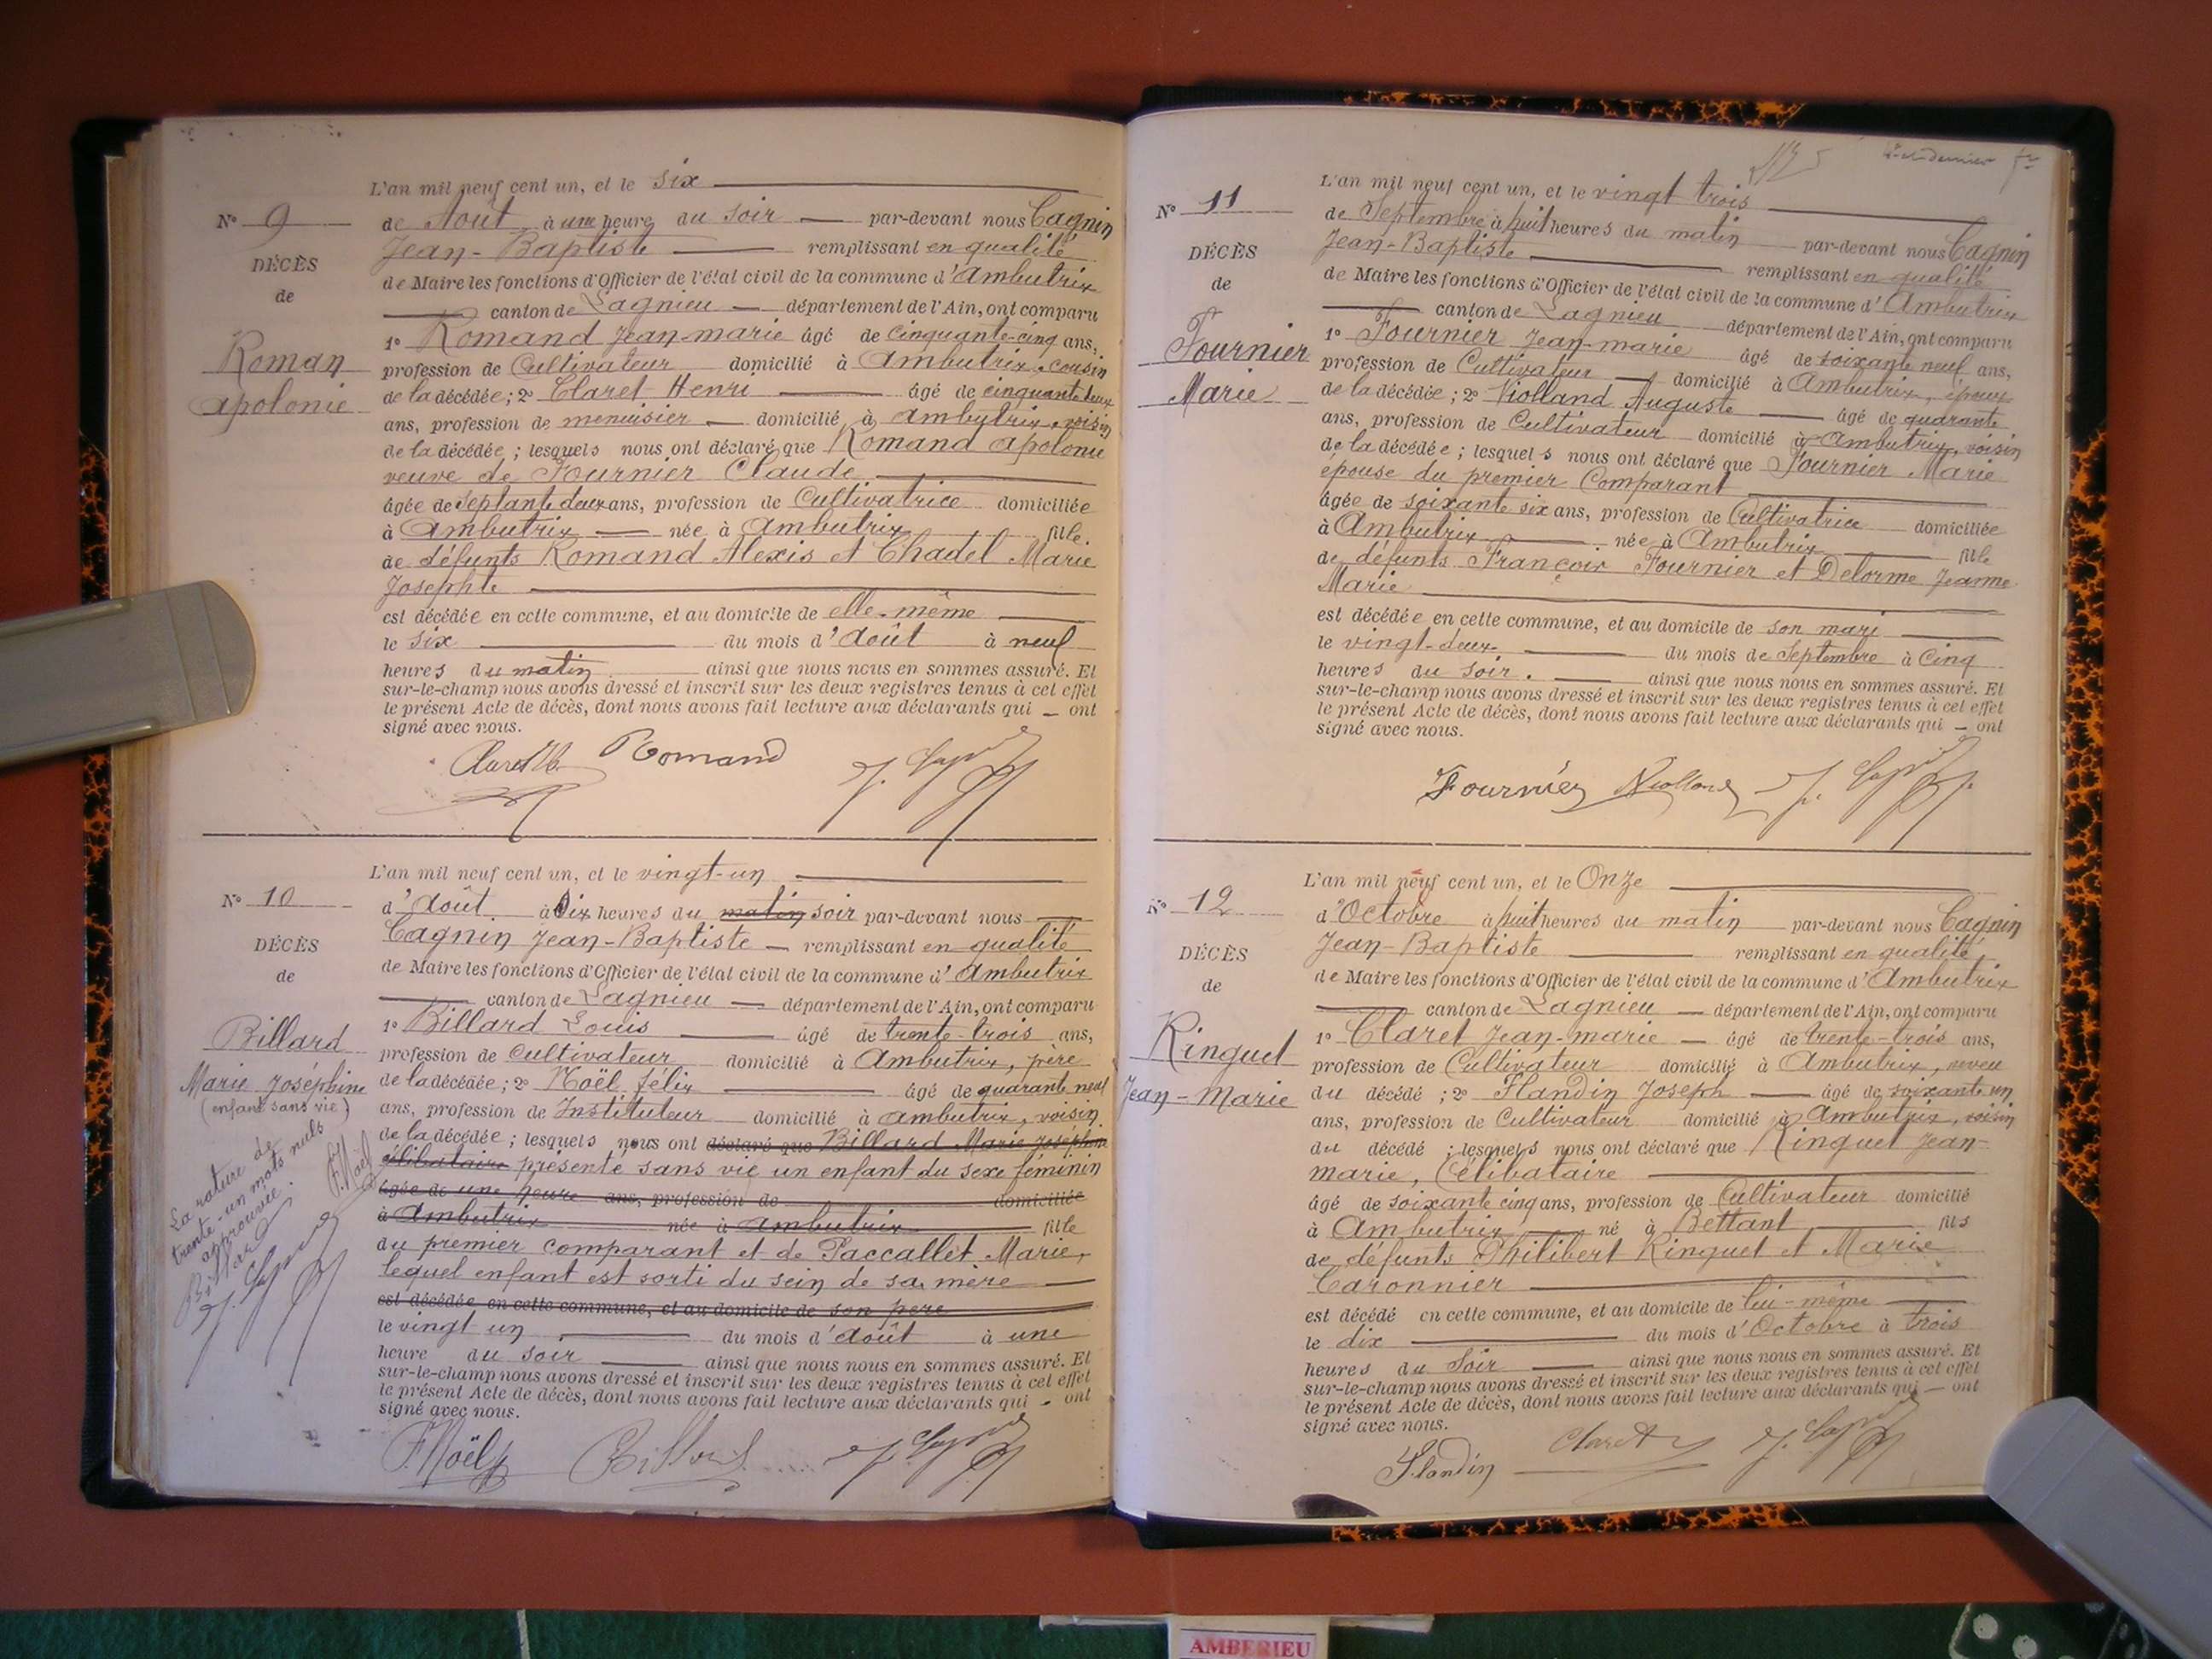 L'an mil neuf cent un, et le six
N° 9 de Août à une heure du soir par-devant nous Cagnin
Jean-Baptiste remplissant en qualité
DÉCÈS
de Maire les fonctions d'Officier de l'état civil de la commune d'Ambutrix
de
canton de Lagnieu département de l'Ain, ont comparu
1° Romand Jean-marie âgé de cinquante-cinq ans,
Roman
profession de Cultivateur domicilié à Ambutrix, cousin
apolonie
de la décédée ; 2° Claret Henri âgé de cinquante deux
ans, profession de menuisier domicilié à ambutrix, voisin
de la décédée ; lesquels nous ont déclaré que Romand apolonie
veuve de Fournier Claude
âgée de septante deux ans, profession de Cultivatrice domiciliée
à Ambutrix née à Ambutrix fille
de défunts Romand Alexis et Chadel Marie
Josephte
est décédée en cette commune, et au domicile de elle-même
le six du mois d'août à neuf
heures du matin ainsi que nous nous en sommes assuré. Et
sur-le-champ nous avons dressé et inscrit sur les deux registres tenus à cet effet
le présent Acte de décès, dont nous avons fait lecture aux déclarants qui ont
signé avec nous.
Claret H. Romand J. Cagnin
L'an mil neuf cent un, et le vingt-un
N° 10 d'août à Dix heures du matin soir par-devant nous
Cagnin Jean-Baptiste remplissant en qualité
DÉCÈS
de Maire les fonctions d'Officier de l'état civil de la commune d'Ambutrix
de
canton de Lagnieu département de l'Ain, ont comparu
1° Billard Louis âgé de trente-trois ans,
Billard
profession de Cultivateur domicilié à Ambutrix, père
Marie Joséphine
de la décédée ; 2° Noël félix âgé de quarante neuf
(enfant sans vie)
ans, profession de Instituteur domicilié à ambutrix, voisin
de la décédée ; lesquels nous ont déclaré que Billard Marie Joséphine
célibataire présenté sans vie un enfant du sexe féminin
âgée de une heure ans, profession de domiciliée
à Ambutrix née à Ambutrix fille
du premier comparant et de Paccallet Marie,
lequel enfant est sorti du sein de sa mère
est décédée en cette commune, et au domicile de son père
le vingt un du mois d'août à une
heure du soir ainsi que nous nous en sommes assuré. Et
sur-le-champ nous avons dressé et inscrit sur les deux registres tenus à cet effet
le présent Acte de décès, dont nous avons fait lecture aux déclarants qui ont
signé avec nous.
La rature de
trente-un mots nuls
approuvée.
Billard
F. Noël
J. Cagnin
F. Noël Billard J. Cagnin
L'an mil neuf cent un, et le vingt trois
N° 11 de Septembre à huit heures du matin par-devant nous Cagnin
Jean-Baptiste remplissant en qualité
DÉCÈS
de Maire les fonctions d'Officier de l'état civil de la commune d'Ambutrix
de
canton de Lagnieu département de l'Ain, ont comparu
1° Fournier Jean-marie âgé de soixante neuf ans,
Fournier
profession de Cultivateur domicilié à Ambutrix, époux
Marie
de la décédée ; 2° Violland Auguste âgé de quarante
ans, profession de Cultivateur domicilié à Ambutrix, voisin
de la décédée ; lesquels nous ont déclaré que Fournier Marie
épouse du premier Comparant
âgée de soixante six ans, profession de Cultivatrice domiciliée
à Ambutrix née à Ambutrix fille
de défunts François Fournier et Delorme Jeanne
Marie
est décédée en cette commune, et au domicile de son mari
le vingt-deux du mois de Septembre à Cinq
heures du soir. ainsi que nous nous en sommes assuré. Et
sur-le-champ nous avons dressé et inscrit sur les deux registres tenus à cet effet
le présent Acte de décès, dont nous avons fait lecture aux déclarants qui ont
signé avec nous.
Fournier Violland J. Cagnin
L'an mil neuf cent un, et le Onze
N° 12 d'Octobre à huit heures du matin par-devant nous Cagnin
Jean-Baptiste remplissant en qualité
DÉCÈS
de Maire les fonctions d'Officier de l'état civil de la commune d'Ambutrix
de
canton de Lagnieu département de l'Ain, ont comparu
1° Claret Jean-marie âgé de trente-trois ans,
Ringuet
profession de Cultivateur domicilié à Ambutrix, neveu
Jean-Marie
du décédé ; 2° Flandin Joseph âgé de soixante un
ans, profession de Cultivateur domicilié à Ambutrix, voisin
du décédé ; lesquels nous ont déclaré que Ringuet Jean-
marie, Célibataire
âgé de soixante cinq ans, profession de Cultivateur domicilié
à Ambutrix né à Bettant fils
de défunts Philibert Ringuet et Marie
Caronnier
est décédé en cette commune, et au domicile de lui-même
le dix du mois d'Octobre à trois
heures du Soir ainsi que nous nous en sommes assuré. Et
sur-le-champ nous avons dressé et inscrit sur les deux registres tenus à cet effet
le présent Acte de décès, dont nous avons fait lecture aux déclarants qui ont
signé avec nous.
Flandin Claret J. Cagnin
AMBERIEU